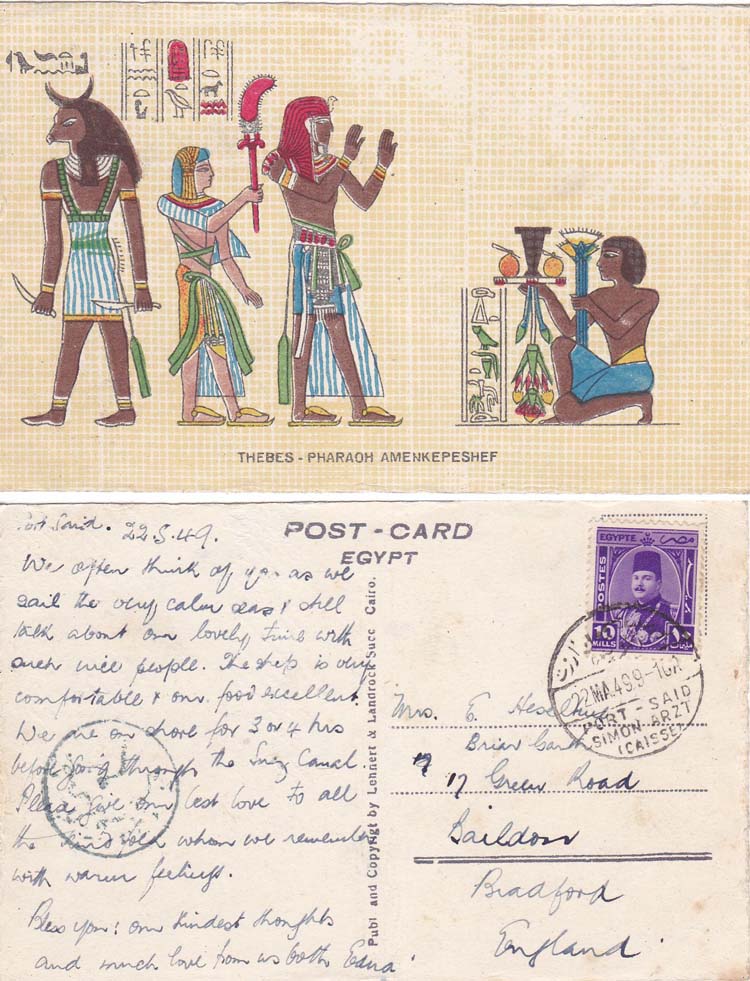 THEBES - PHARAOH AMENKEPESHEF
Port Said. 22.5.49.
We often think of you as we
sail the very calm seas & still
talk about our lovely time with
such nice people. The ship is very
comfortable & our food excellent.
We are on shore for 3 or 4 hrs
before going through the Suez Canal.
Please give our best love to all
the kind folk whom we remember
with warm feelings.
Bless you! our kindest thoughts
and much love from us both Edna
POST-CARD
EGYPT
Publ and Copyrigt by Lehnert & Landrock Succ Cairo.
EGYPTE مصر
POSTES
10 MILLS ١٠
22 MA.49.9-10A
PORT-SAID
SIMON ARZT
(CAISSE)
Mrs. E.
Briar Garth
17 Green Road
Baildon
Bradford
England.